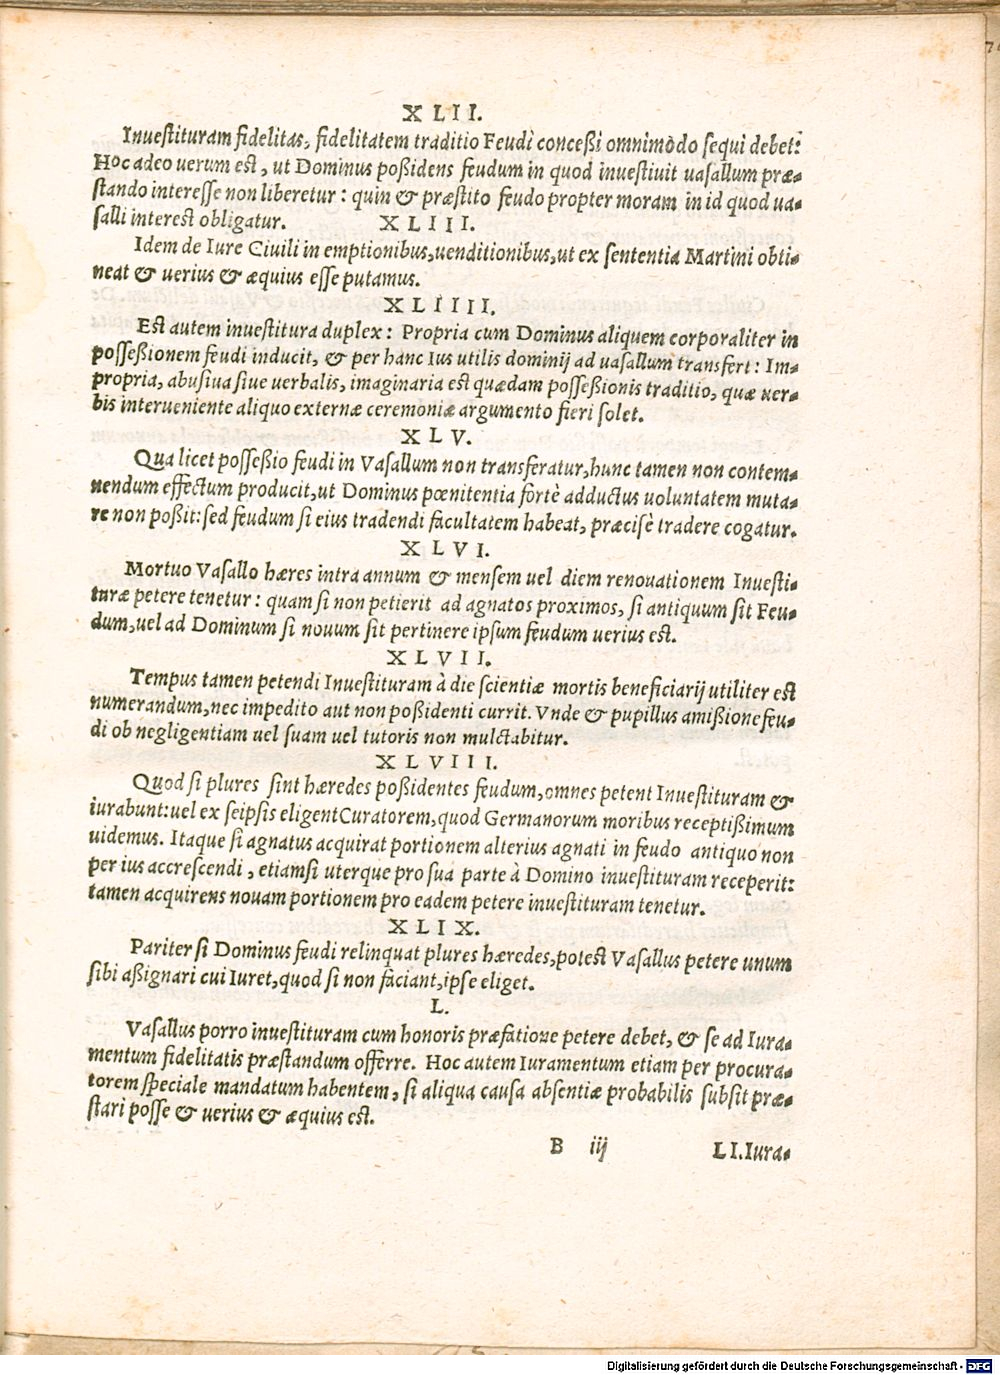 XLII.
Inuestituram fidelitas, fidelitatem traditio Feudi conceßi omnimodo sequi debet:
Hoc adeo uerum est, ut Dominus poßidens feudum in quod inuestiuit uasallum præ-
stando interesse non liberetur: quin & præstito feudo propter moram in id quod ua-
salli interest obligatur. XLIII.
Idem de Iure Ciuili in emptionibus, uenditionibus, ut ex sententia Martini obti-
neat & uerius & æquius esse putamus.
XLIIII.
Est autem inuestitura duplex: Propria cum Dominus aliquem corporaliter in
posseßionem feudi inducit, & per hanc Ius utilis dominij ad uasallum transfert: Im-
propria, abusiua siue uerbalis, imaginaria est quædam posseßionis traditio, quæ uer-
bis interueniente aliquo externæ ceremoniæ argumento fieri solet.
XLV.
Qua licet posseßio feudi in Vasallum non transferatur, hunc tamen non contem-
nendum effectum producit, ut Dominus pœnitentia fortè adductus uoluntatem muta-
re non poßit: sed feudum si eius tradendi facultatem habeat, præcisè tradere cogatur.
XLVI.
Mortuo Vasallo hæres intra annum & mensem uel diem renouationem Inuesti-
turæ petere tenetur: quam si non petierit ad agnatos proximos, si antiquum sit Feu-
dum, uel ad Dominum si nouum sit pertinere ipsum feudum uerius est.
XLVII.
Tempus tamen petendi Inuestituram à die scientiæ mortis beneficiarij utiliter est
numerandum, nec impedito aut non poßidenti currit. Vnde & pupillus amißione feu-
di ob negligentiam uel suam uel tutoris non mulctabitur.
XLVIII.
Quod si plures sint hæredes poßidentes feudum, omnes petent Inuestituram &
iurabunt: uel ex seipsis eligent Curatorem, quod Germanorum moribus receptißimum
uidemus. Itaque si agnatus acquirat portionem alterius agnati in feudo antiquo non
per ius accrescendi, etiamsi uterque pro sua parte à Domino inuestituram receperit:
tamen acquirens nouam portionem pro eadem petere inuestituram tenetur.
XLIX.
Pariter si Dominus feudi relinquat plures hæredes, potest Vasallus petere unum
sibi aßignari cui Iuret, quod si non faciant, ipse eliget.
L.
Vasallus porro inuestituram cum honoris præfatione petere debet, & se ad Iura-
mentum fidelitatis præstandum offerre. Hoc autem Iuramentum etiam per procura-
torem speciale mandatum habentem, si aliqua causa absentiæ probabilis subsit præ-
stari posse & uerius & æquius est.
B iij LI. Iura-
Digitalisierung gefördert durch die Deutsche Forschungsgemeinschaft - DFG